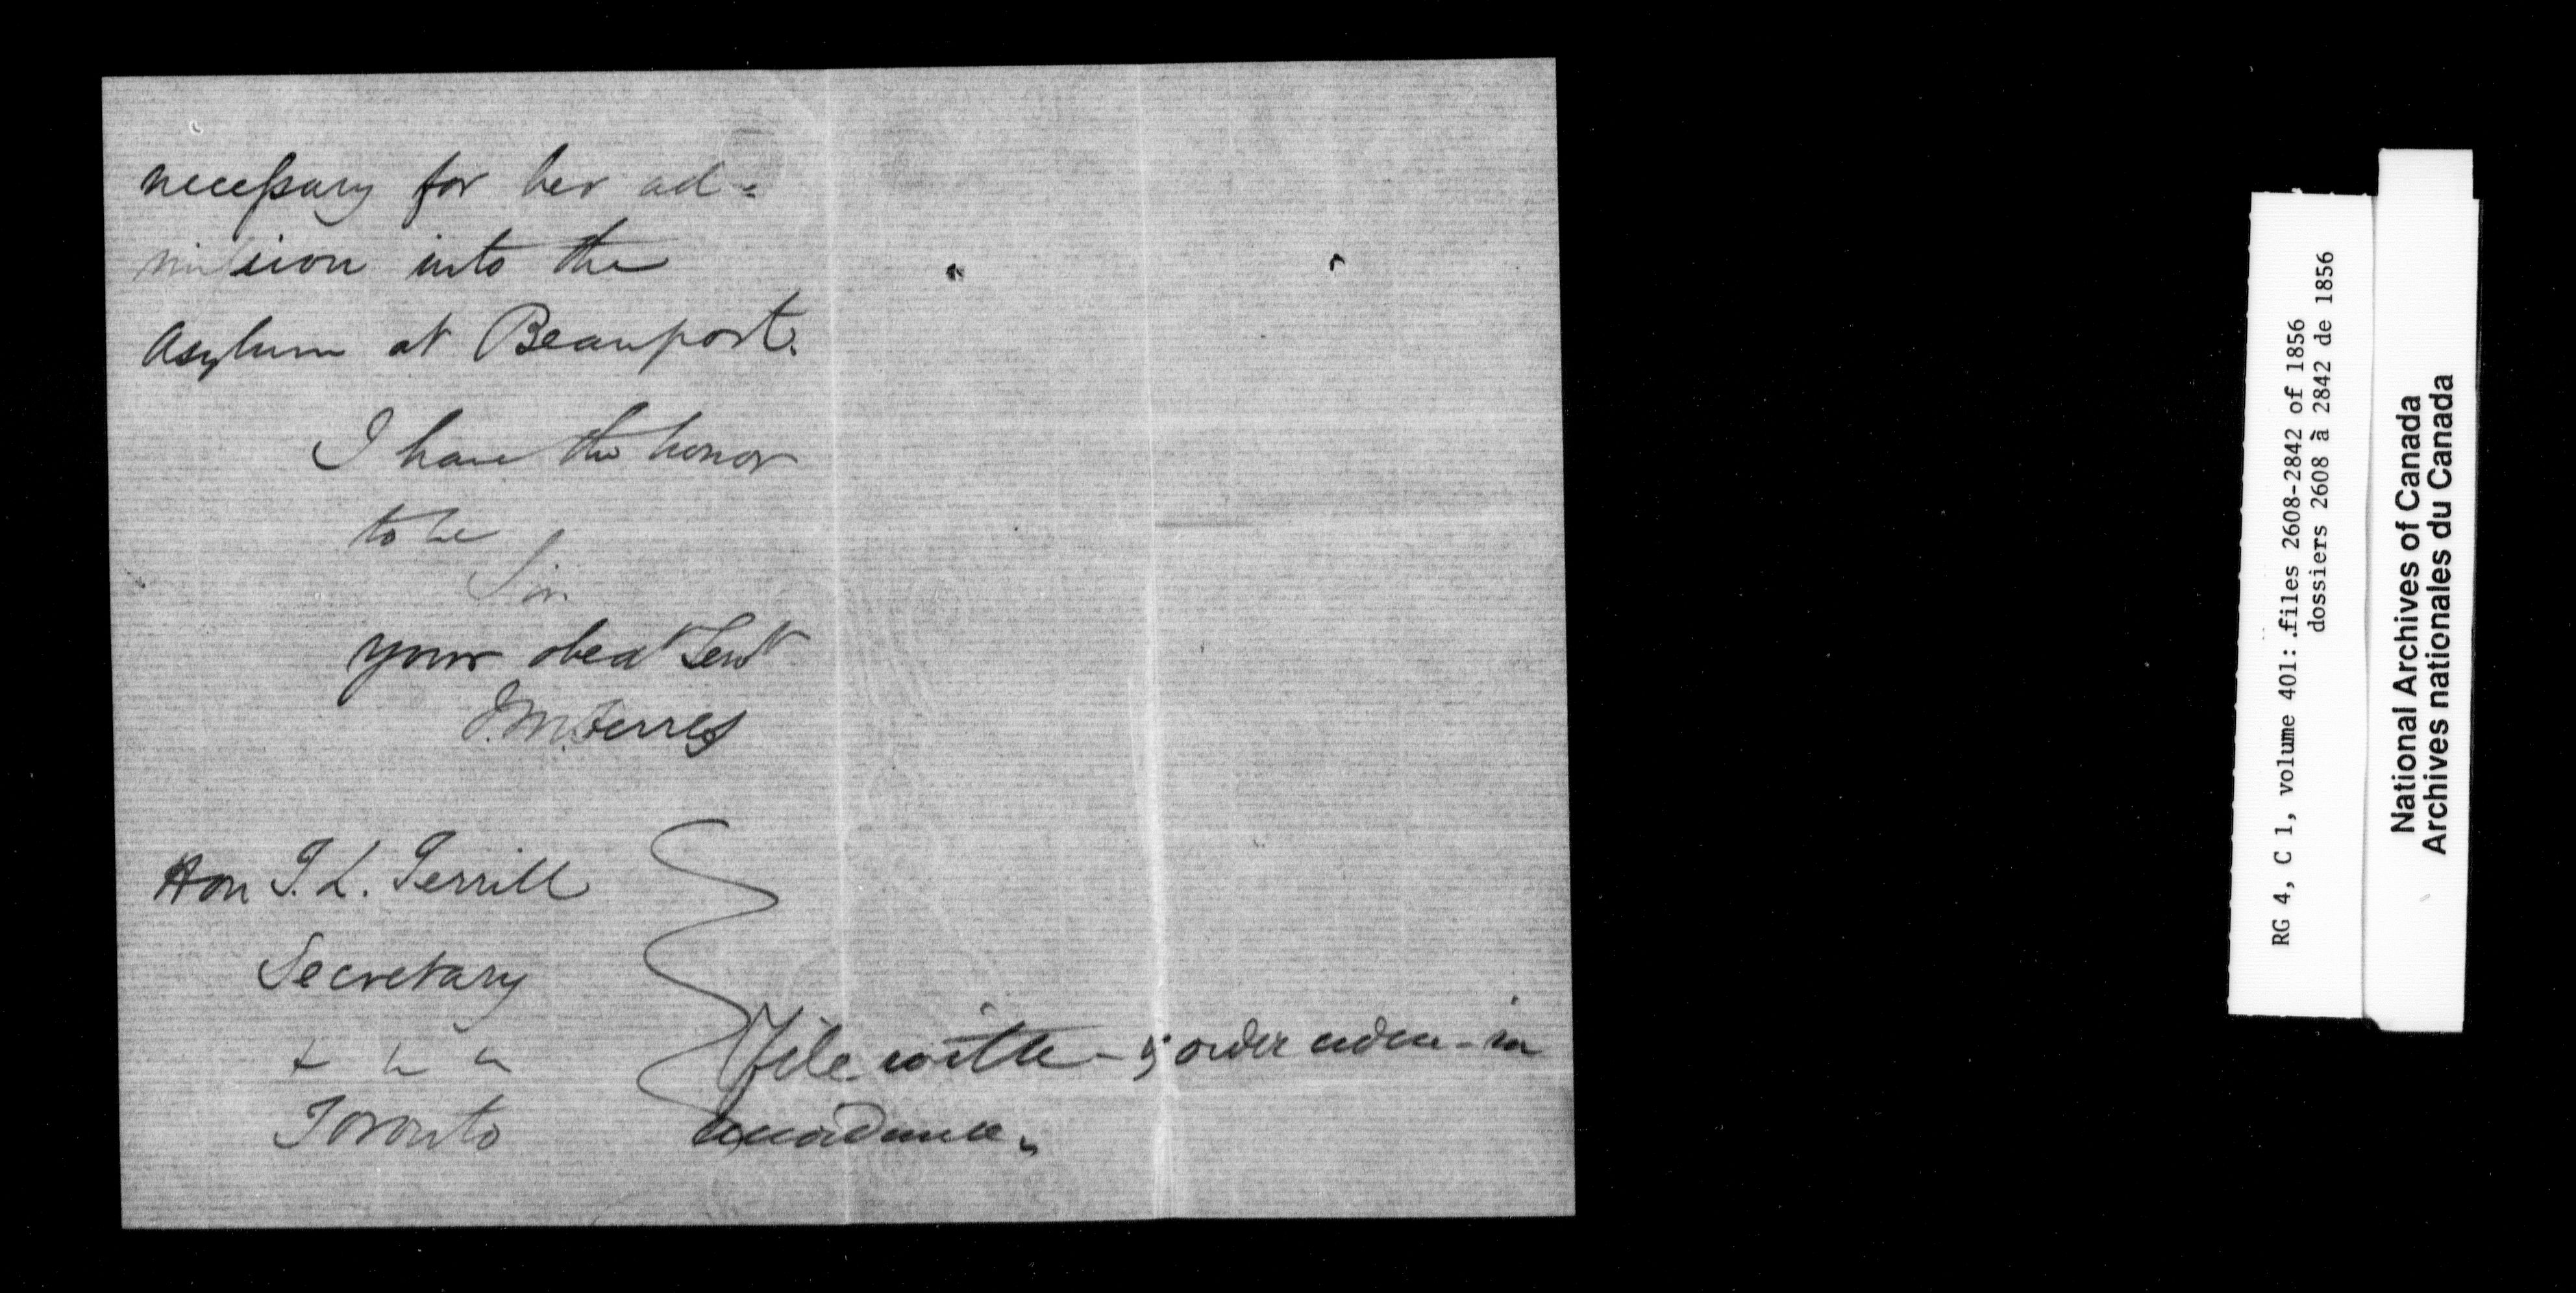 necessary for her ad=
mission into the
Asylum at Beauport.
I have the honor
to be
Sir
your obedt Servt
J. M. Ferres
Hon T. L. Terrill
Secretary
&c &c &c
Toronto
File with - & order in
accordance.
RG 4, C 1, volume 401: files 2608-2842 of 1856
dossiers 2608 à 2842 de 1856
National Archives of Canada
Archives nationales du Canada